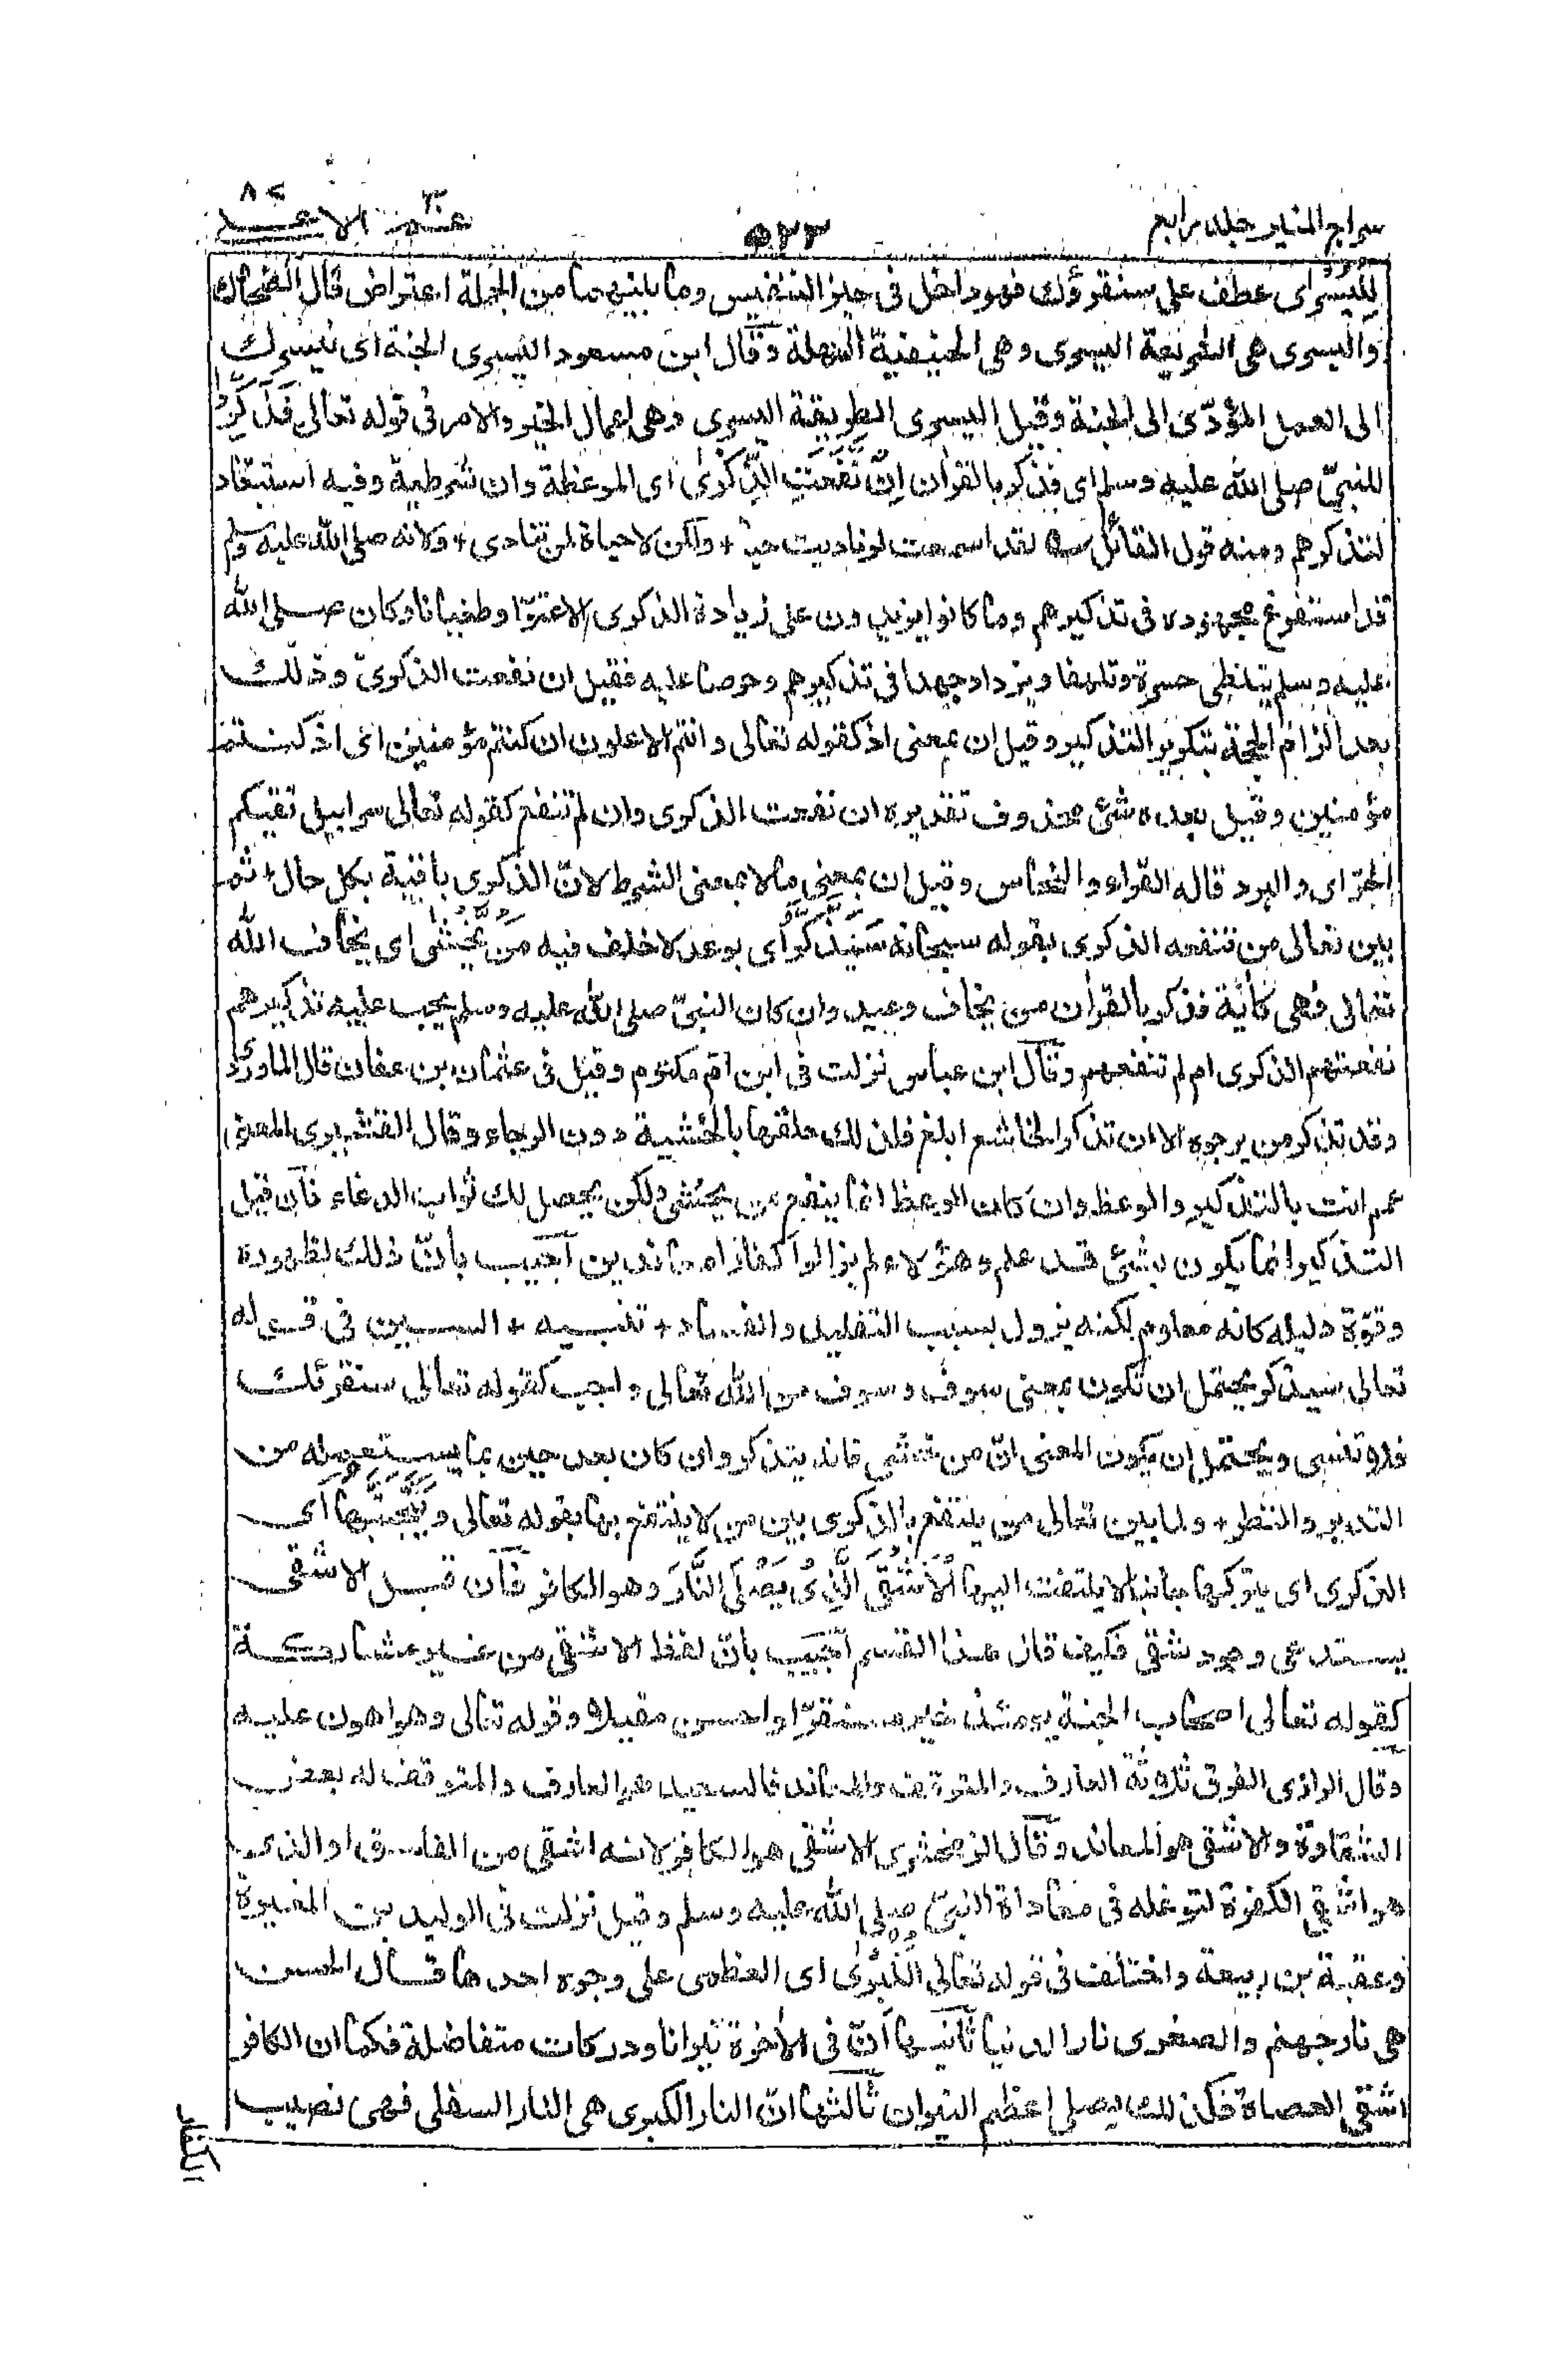 سراج المنير جلد رابع
٥٢٣
عمّ ٣٠ الاعلى ٨٧
لِلْيُسْرٰى عطف على سنقرؤك فهو داخل فى حيز التنفيس وما بينهما من الجملة اعتراض قال الضحاك
واليسرى هى الشريعة اليسرى وهى الحنيفية السهلة وقال ابن مسعود اليسرى الجنة اى نيسرك
الى العمل المؤدّى الى الجنة وقيل اليسرى الطريقة اليسرى وهى اعمال الخير والامر فى قوله تعالى فَذَكِّرْ
للنبىّ صلى الله عليه وسلم اى فذكر بالقراٰن اِنْ نَّفَعَتِ الذِّكْرٰى اى الموعظة وان شرطية وفيه استبعاد
لتذكرهم ومنه قول القائل ؎ لقد اسمعت لو ناديت حيا + ولكن لا حياة لمن تنادى + ولانه صلى الله عليه وسلم
قد استفرغ مجهوده فى تذكيرهم وما كانوا يزيدون على زيادة الذكرى الا عتوّا وطغيانا وكان صلى الله
عليه وسلم يتلظى حسرة وتلهفا ويزداد جهدا فى تذكيرهم وحرصا عليه فقيل ان نفعت الذكرى وذلك
بعد الزام الحجة بتكرير التذكير وقيل ان بمعنى اذ كقوله تعالى وانتم الاعلون ان كنتم مؤمنين اى اذ كنتم
مؤمنين وقيل بعده شئ محذوف تقديره ان نفعت الذكرى وان لم تنفع كقوله تعالى سرابيل تقيكم
الحرّ اى والبرد قاله الفراء والنحاس وقيل ان بمعنى ما لا بمعنى الشرط لانّ الذكرى باقية بكل حال + ثم
بين تعالى من تنفعه الذكرى بقوله سبحانه سَيَذَّكَّرُ اى بوعد لا خلف فيه مَنْ يَّخْشٰى اى يخاف الله
تعالى فهى كاٰية فذكر بالقراٰن من يخاف وعيد وان كان النبىّ صلى الله عليه وسلم يجب عليه تذكيرهم
نفعتهم الذكرى ام لم تنفعهم وقال ابن عباس نزلت فى ابن امّ مكتوم وقيل فى عثمان بن عفان قال الماوردى
وقد تذكر من يرجوه الا ان تذكرة الخاشع ابلغ فلذلك علقها بالخشية دون الرجاء وقال القشيرى المعنى
عمم انت بالتذكير والوعظ وان كان الوعظ انما ينفع من يخشى ولكن يحصل لك ثواب الدعاء فان قيل
التذكير انما يكون بشئ قد علم وهؤلاء لم يزالوا كفارا معاندين اجيب بانّ ذلك لظهوره
وقوّة دليله كانه معلوم لكنه يزول بسبب التقليد والعناد + تنبيه + السين فى قوله
تعالى سيذكر يحتمل ان تكون بمعنى سوف وسوف من الله تعالى واجب كقوله تعالى سنقرئك
فلا تنسى ويحتمل ان يكون المعنى انّ من خشى فانه يتذكر وان كان بعد حين بما يستعمله من
التدبر والنظر + ولما بين تعالى من ينتفع بالذكرى بين من لا ينتفع بها بقوله تعالى وَيَتَجَنَّبُهَا اى
الذكرى اى يتركها جانبا لا يلتفت اليها الْاَشْقَى الَّذِىْ يَصْلَى النَّارَ وهو الكافر فان قيل الاشقى
يستدعى وجود شقى فكيف قال هذا القسم اجيب بانّ لفظ الاشقى من غير مشاركة
كقوله تعالى اصحاب الجنة يومئذ خير مستقرّا واحسن مقيلا وقوله تعالى وهو اهون عليه
وقال الرازى الفرق ثلاثة العارف والمتوقف والمعاند فالسعيد هو العارف والمتوقف له بعض
الشقاوة والاشقى هو المعاند وقال الزمخشرى الاشقى هو الكافر لانه اشقى من الفاسق او الذى
هو اشقى الكفرة لتوغله فى معاداة النبىّ صلى الله عليه وسلم وقيل نزلت فى الوليد بن المغيرة
وعقبة بن ربيعة واختلف فى قوله تعالى الْكُبْرٰى اى العظمى على وجوه احدها قال الحسن
هى نار جهنم والصغرى نار الدنيا ثانيها انّ فى الاٰخرة نيرانا ودركات متفاضلة فكما ان الكافر
اشقى العصاة فكذلك يصلى اعظم النيران ثالثها انّ النار الكبرى هى النار السفلى فهى نصيب